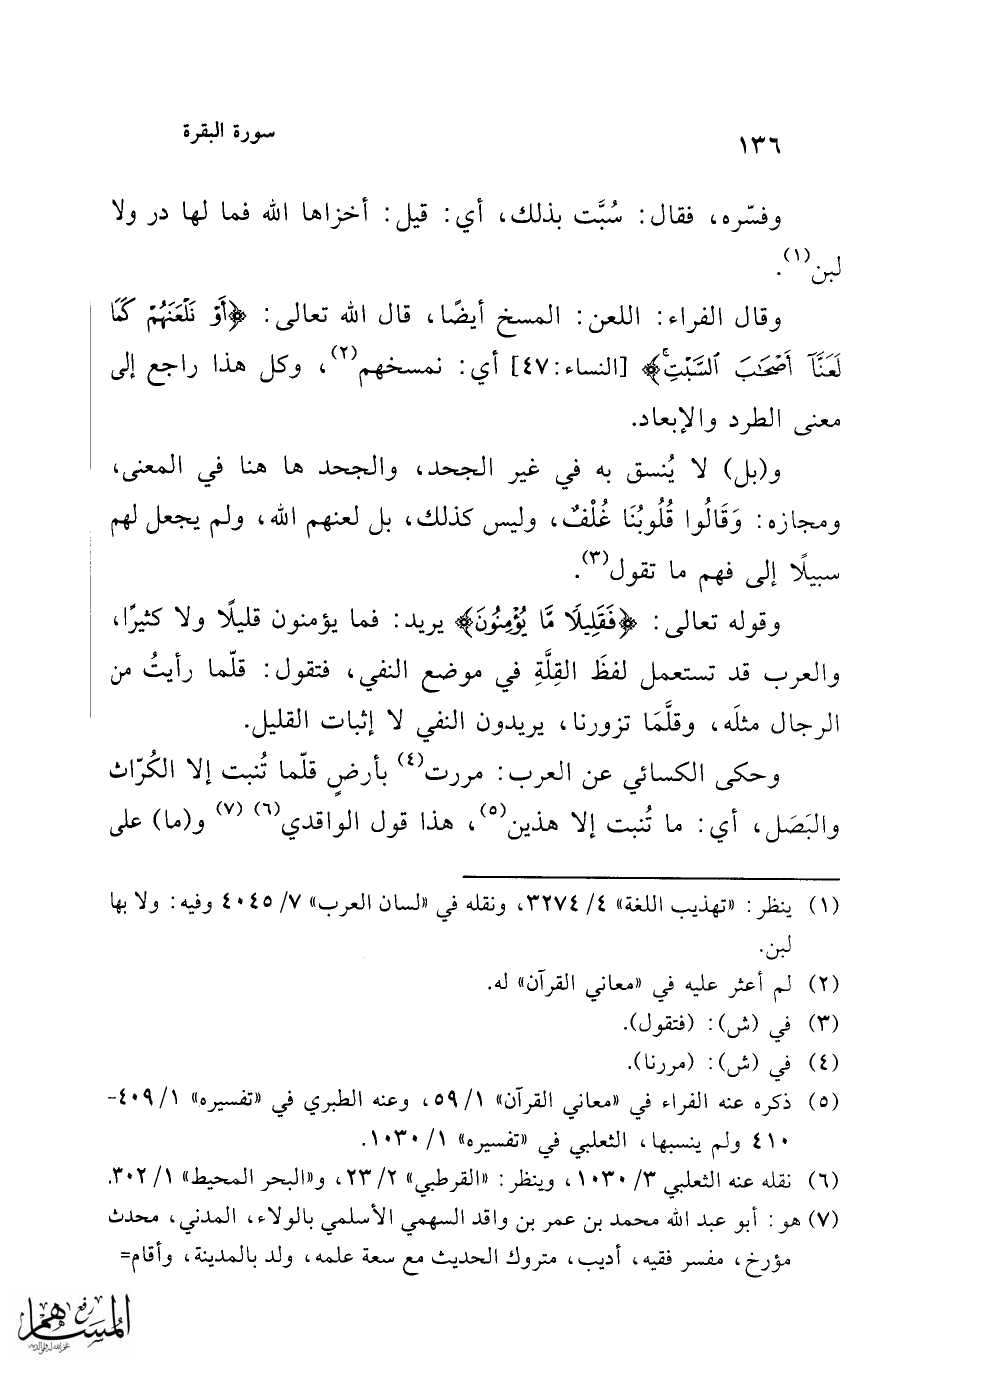 ١٣٦ سورة البقرة
وفسّره، فقال: سُبَّت بذلك، أي: قيل: أخزاها الله فما لها در ولا
لبن(١).
وقال الفراء: اللعن: المسخ أيضًا، قال الله تعالى: ﴿أَوْ نَلْعَنَهُمْ كَمَا
لَعَنَّآ أَصْحَٰبَ ٱلسَّبْتِۚ﴾ [النساء:٤٧] أي: نمسخهم(٢)، وكل هذا راجع إلى
معنى الطرد والإبعاد.
و(بل) لا يُنسق به في غير الجحد، والجحد ها هنا في المعنى،
ومجازه: وَقَالُوا قُلُوبُنَا غُلْفٌ، وليس كذلك، بل لعنهم الله، ولم يجعل لهم
سبيلًا إلى فهم ما تقول(٣).
وقوله تعالى: ﴿فَقَلِيلًا مَّا يُؤْمِنُونَ﴾ يريد: فما يؤمنون قليلًا ولا كثيرًا،
والعرب قد تستعمل لفظَ القِلَّةِ في موضع النفي، فتقول: قلّما رأيتُ من
الرجال مثلَه، وقلَّمَا تزورنا، يريدون النفي لا إثبات القليل.
وحكى الكسائي عن العرب: مررت(٤) بأرضٍ قلّما تُنبت إلا الكُرّاث
والبَصَل، أي: ما تُنبت إلا هذين(٥)، هذا قول الواقدي(٦) (٧) و(ما) على
(١) ينظر: «تهذيب اللغة» ٤/ ٣٢٧٤، ونقله في «لسان العرب» ٧/ ٤٠٤٥ وفيه: ولا بها
لبن.
(٢) لم أعثر عليه في «معاني القرآن» له.
(٣) في (ش): (فتقول).
(٤) في (ش): (مررنا).
(٥) ذكره عنه الفراء في «معاني القرآن» ١/ ٥٩، وعنه الطبري في «تفسيره» ١/ ٤٠٩-
٤١٠ ولم ينسبها، الثعلبي في «تفسيره» ١/ ١٠٣٠.
(٦) نقله عنه الثعلبي ٣/ ١٠٣٠، وينظر: «القرطبي» ٢/ ٢٣، و«البحر المحيط» ١/ ٣٠٢.
(٧) هو: أبو عبد الله محمد بن عمر بن واقد السهمي الأسلمي بالولاء، المدني، محدث
مؤرخ، مفسر فقيه، أديب، متروك الحديث مع سعة علمه، ولد بالمدينة، وأقام=